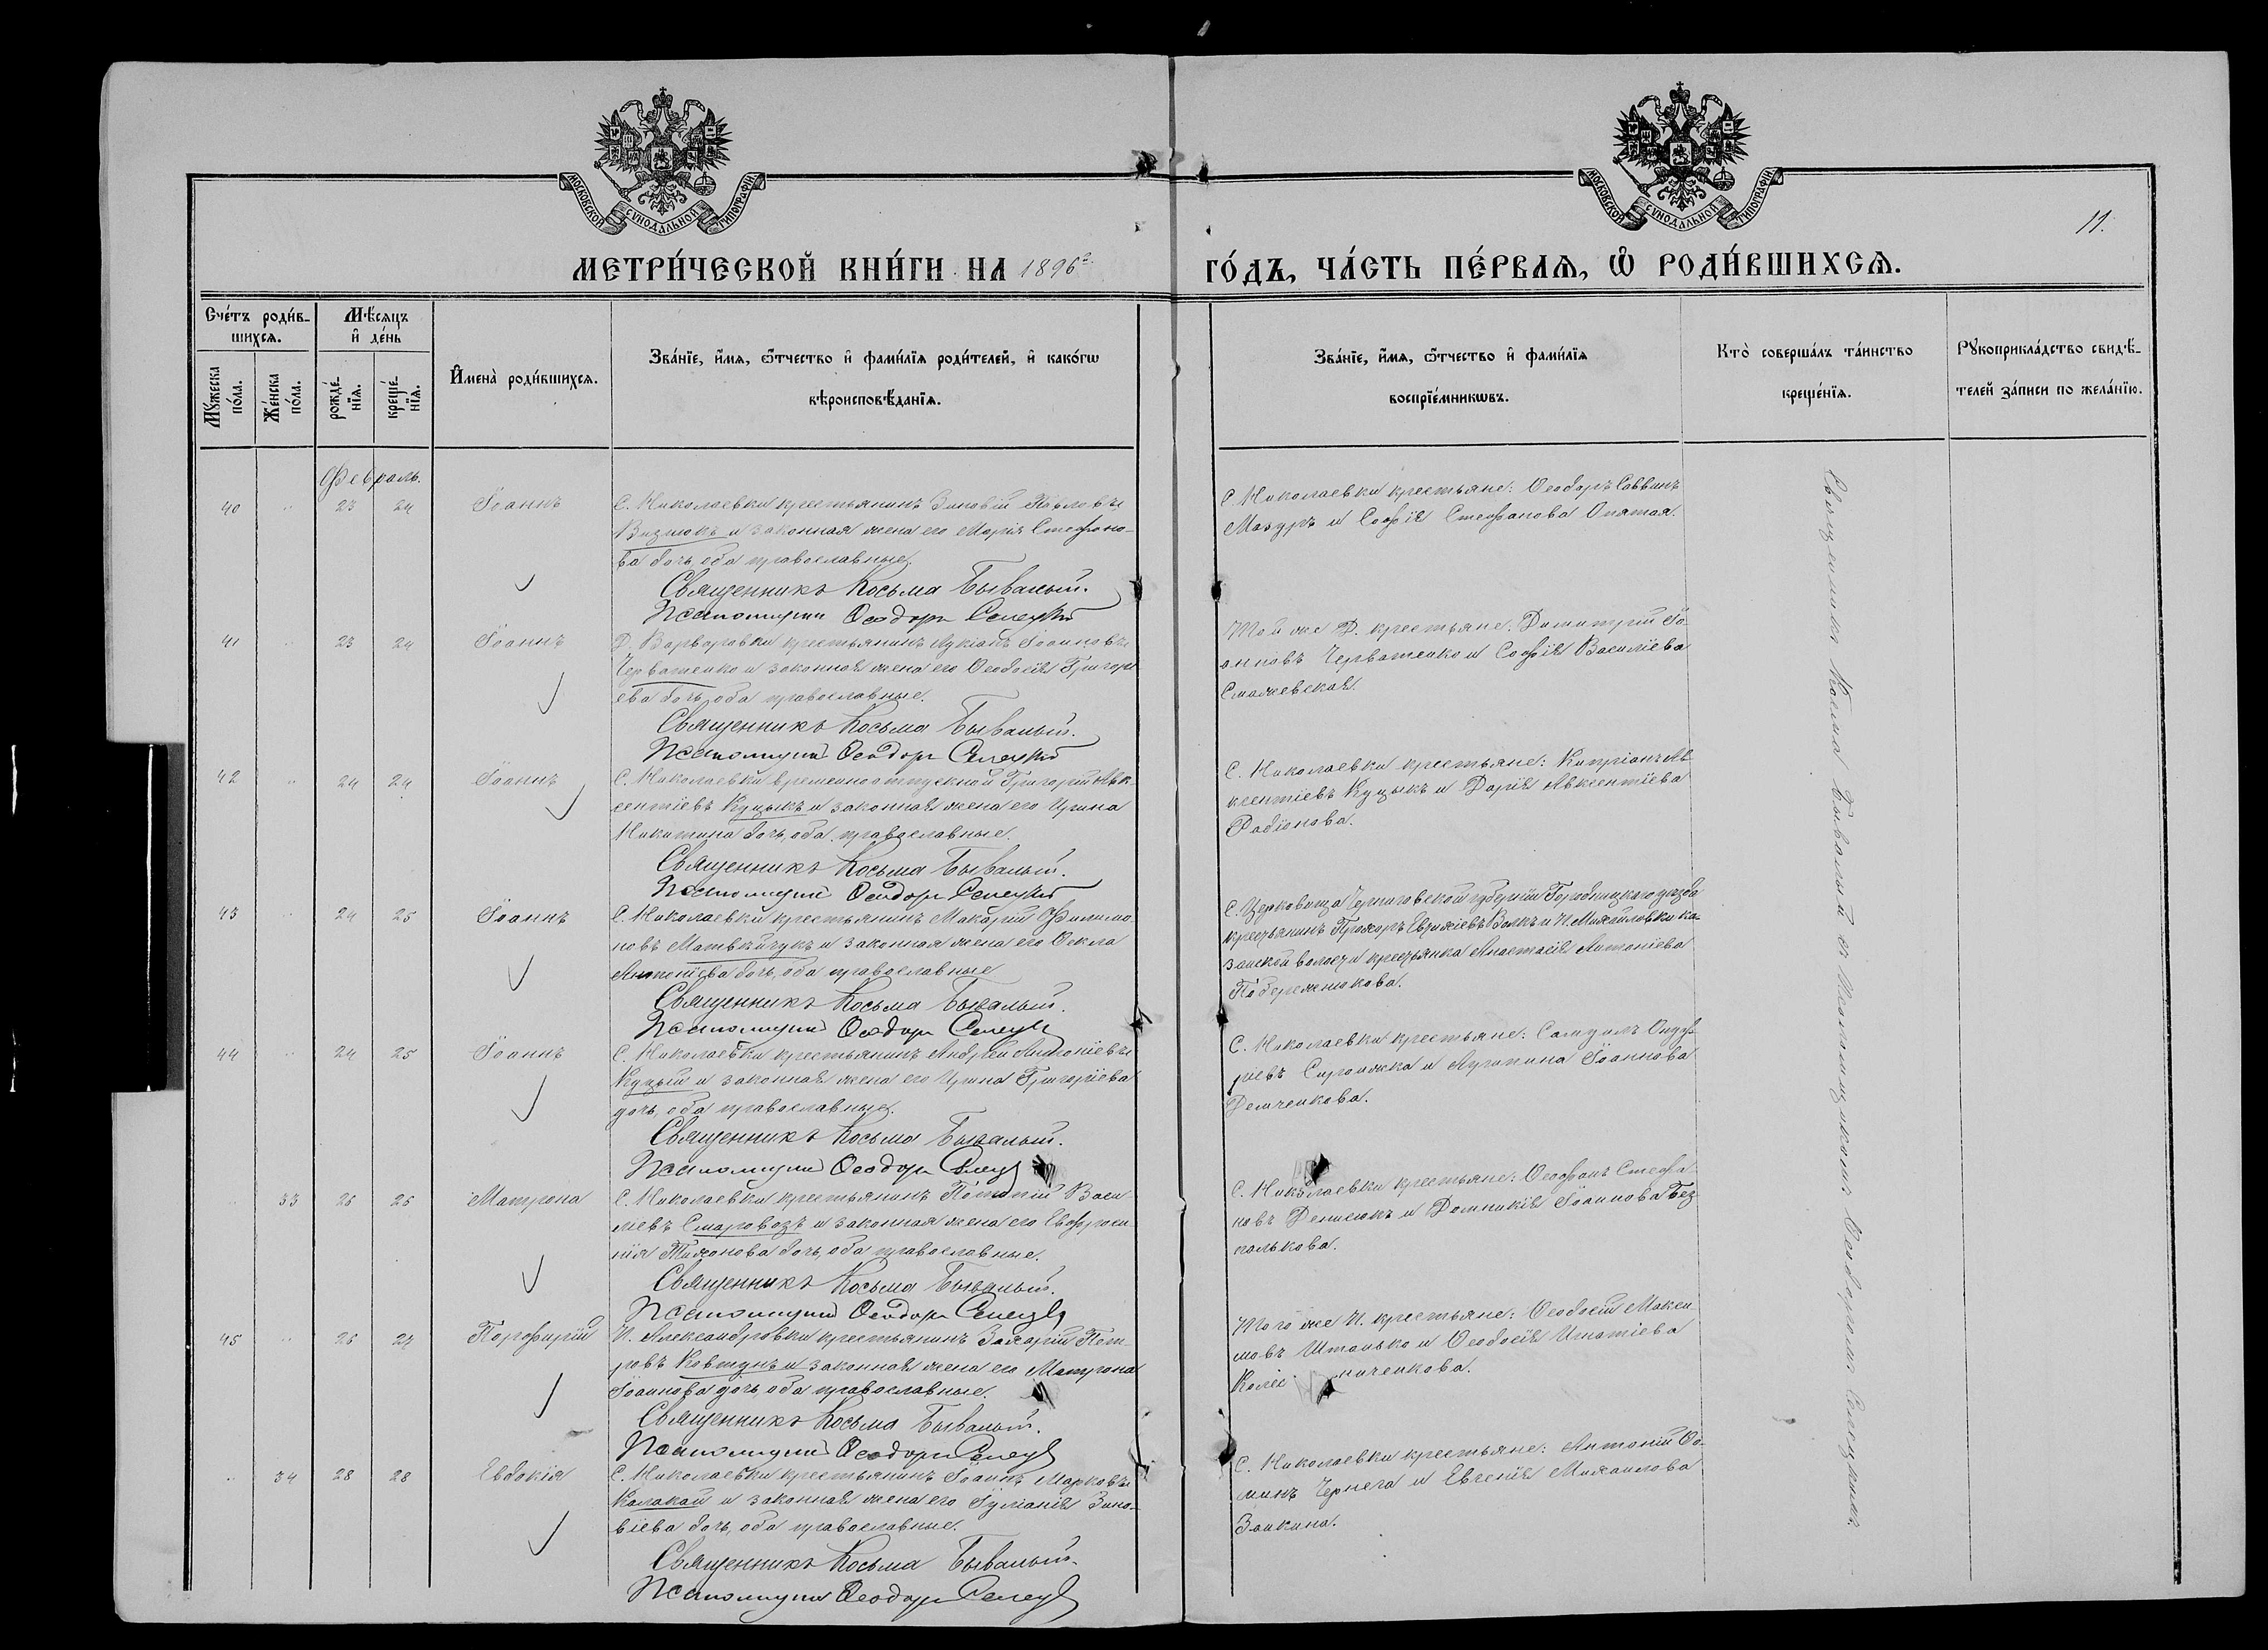 МОСКОВСКОЙ СУНОДАЛЬНОЙ ТИПОГРАФІИ
МОСКОВСКОЙ СУНОДАЛЬНОЙ ТИПОГРАФІИ
11.
МЕТРИ́ЧЕСКОЙ КНИ́ГИ НА 1896 г. ГО́ДЪ, ЧА́СТЬ ПЕ́РВАѦ, Ѡ҆ РОДИ́ВШИХСѦ.
Сче́тъ роди́в-
шихсѧ.
Мꙋ́жеска по́ла.
Же́нска по́ла.
Мѣ́сѧцъ
и҆ де́нь
рожде́-
нїѧ.
креще́-
нїѧ.
И҆мена̀ роди́вшихсѧ.
Зва́нїе, и҆́мѧ, ѻ҆́тчество и҆ фами́лїѧ роди́телей, и҆ како́гѡ
вѣроисповѣ́данїѧ.
Зва́нїе, и҆́мѧ, ѻ҆́тчество и҆ фами́лїѧ
воспрїе́мникѡвъ.
Кто̀ соверша́лъ та́инство
креще́нїѧ.
Рꙋкоприкла́дство свидѣ́-
телей за́писи по жела́нїю.
Февраль.
40 " 23 24 Іоаннъ
С. Николаевки крестьянинъ Зиновій Павловъ
и законная жена его Марія Стефано-
ва дочь, оба православные.
Священникъ Косьма Бывалый.
Псаломщикъ Ѳеодоръ Селецкій
С. Николаевки крестьяне: Ѳеодоръ Саввинъ
Мазуръ и Софія Стефанова Опятая.
41 " 23 24 Іоаннъ
Д. Варваровки крестьянинъ Лукіанъ Іоанновъ
Черватенко и законная жена его Ѳеодосія Григорі
ева дочь, оба православные.
Священникъ Косьма Бывалый.
Псаломщикъ Ѳеодоръ Селецкій
Той же Д. крестьяне: Димитрій Іо-
анновъ Черватенко и Софія Василіева
Смажевская.
42 " 24 24 Іоаннъ
С. Николаевки временноотпускной Григорій Авк-
сентіевъ Куцыкъ и законная жена его Ирина
Никитина дочь, оба православные.
Священникъ Косьма Бывалый.
Псаломщикъ Ѳеодоръ Селецкій
С. Николаевки крестьяне: Кипріанъ Ав-
ксентіевъ Куцыкъ и Дарія Авксентіева
Радіонова.
43 " 24 25 Іоаннъ
С. Николаевки крестьянинъ Макарій Филимо-
новъ Матвѣйчукъ и законная жена его Ѳекла
Антоніева дочь, оба православные
Священникъ Косьма Бывалый.
Псаломщикъ Ѳеодоръ Селецкій
С. Церковища Черниговской губерніи Городницкаго уѣзда
крестьянинъ Прохоръ Волкъ и П. Михайловки ка-
занской волости крестьянка Анастасія Антоніева
Побережнюкова.
44 " 24 25 Іоаннъ
С. Николаевки крестьянинъ Андрей Антоніевъ
Куцый и законная жена его Ирина Григоріева
дочь, оба православные.
Священникъ Косьма Бывалый.
Псаломщикъ Ѳеодоръ Селецкій
С. Николаевки крестьяне: Самуилъ Онуф-
ріевъ Сиромжка и Агрипина Іоаннова
Демченкова.
" 33 26 26 Матрона
С. Николаевки крестьянинъ Потапій Васи-
ліевъ Смаровозъ и законная жена его Евфроси-
нія Тихонова дочь, оба православные.
Священникъ Косьма Бывалый.
Псаломщикъ Ѳеодоръ Селецкій
С. Николаевки крестьяне: Ѳеофанъ Стефа-
новъ Денисюкъ и Домникія Іоаннова Без
палькова.
45 " 26 27 Порфирій
П. Александровки крестьянинъ Захарій Пет-
ровъ Ковтунъ и законная жена его Матрона
Іоаннова дочь, оба православные.
Священникъ Косьма Бывалый.
Псаломщикъ Ѳеодоръ Селецкій
Того же П. крестьяне: Ѳеодосій Макси-
мовъ Штанько и Ѳеодосія Игнатіева
Колес ниченкова.
" 34 28 28 Евдокія
С. Николаевки крестьянинъ Іоаннъ Марковъ
Калакай и законная жена его Іуліанія Зино-
віева дочь, оба православные.
Священникъ Косьма Бывалый.
Псаломщикъ Ѳеодоръ Селецкій
С. Николаевки крестьяне: Антоній Ѳо-
минъ Чернега и Евгенія Михаилова
Заикина.
Священникъ Косьма Бывалый съ Псаломщикомъ Ѳеодоромъ Селецкимъ.